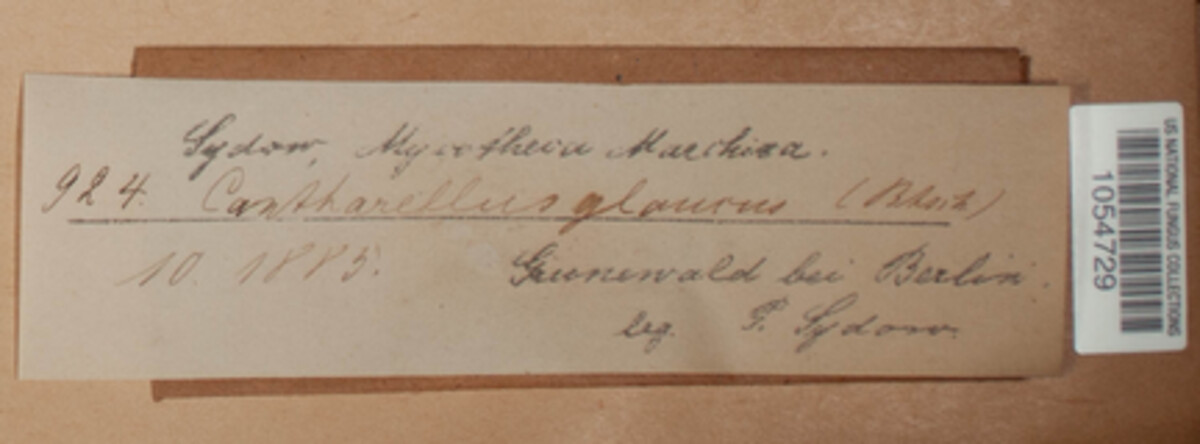 Sydow, Mycotheca Marchica.
924. Cantharellus glaucus (Batsch)
10. 1885. Grunewald bei Berlin.
leg. P. Sydow.
US NATIONAL FUNGUS COLLECTIONS
1054729